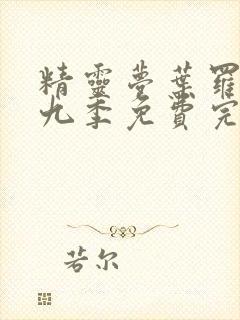 精靈夢葉羅
九季免費完
若尔